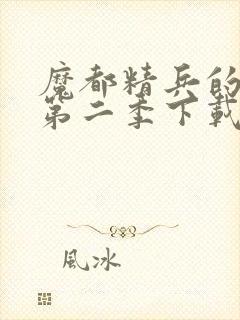 魔都精兵的
第二季下載
風冰